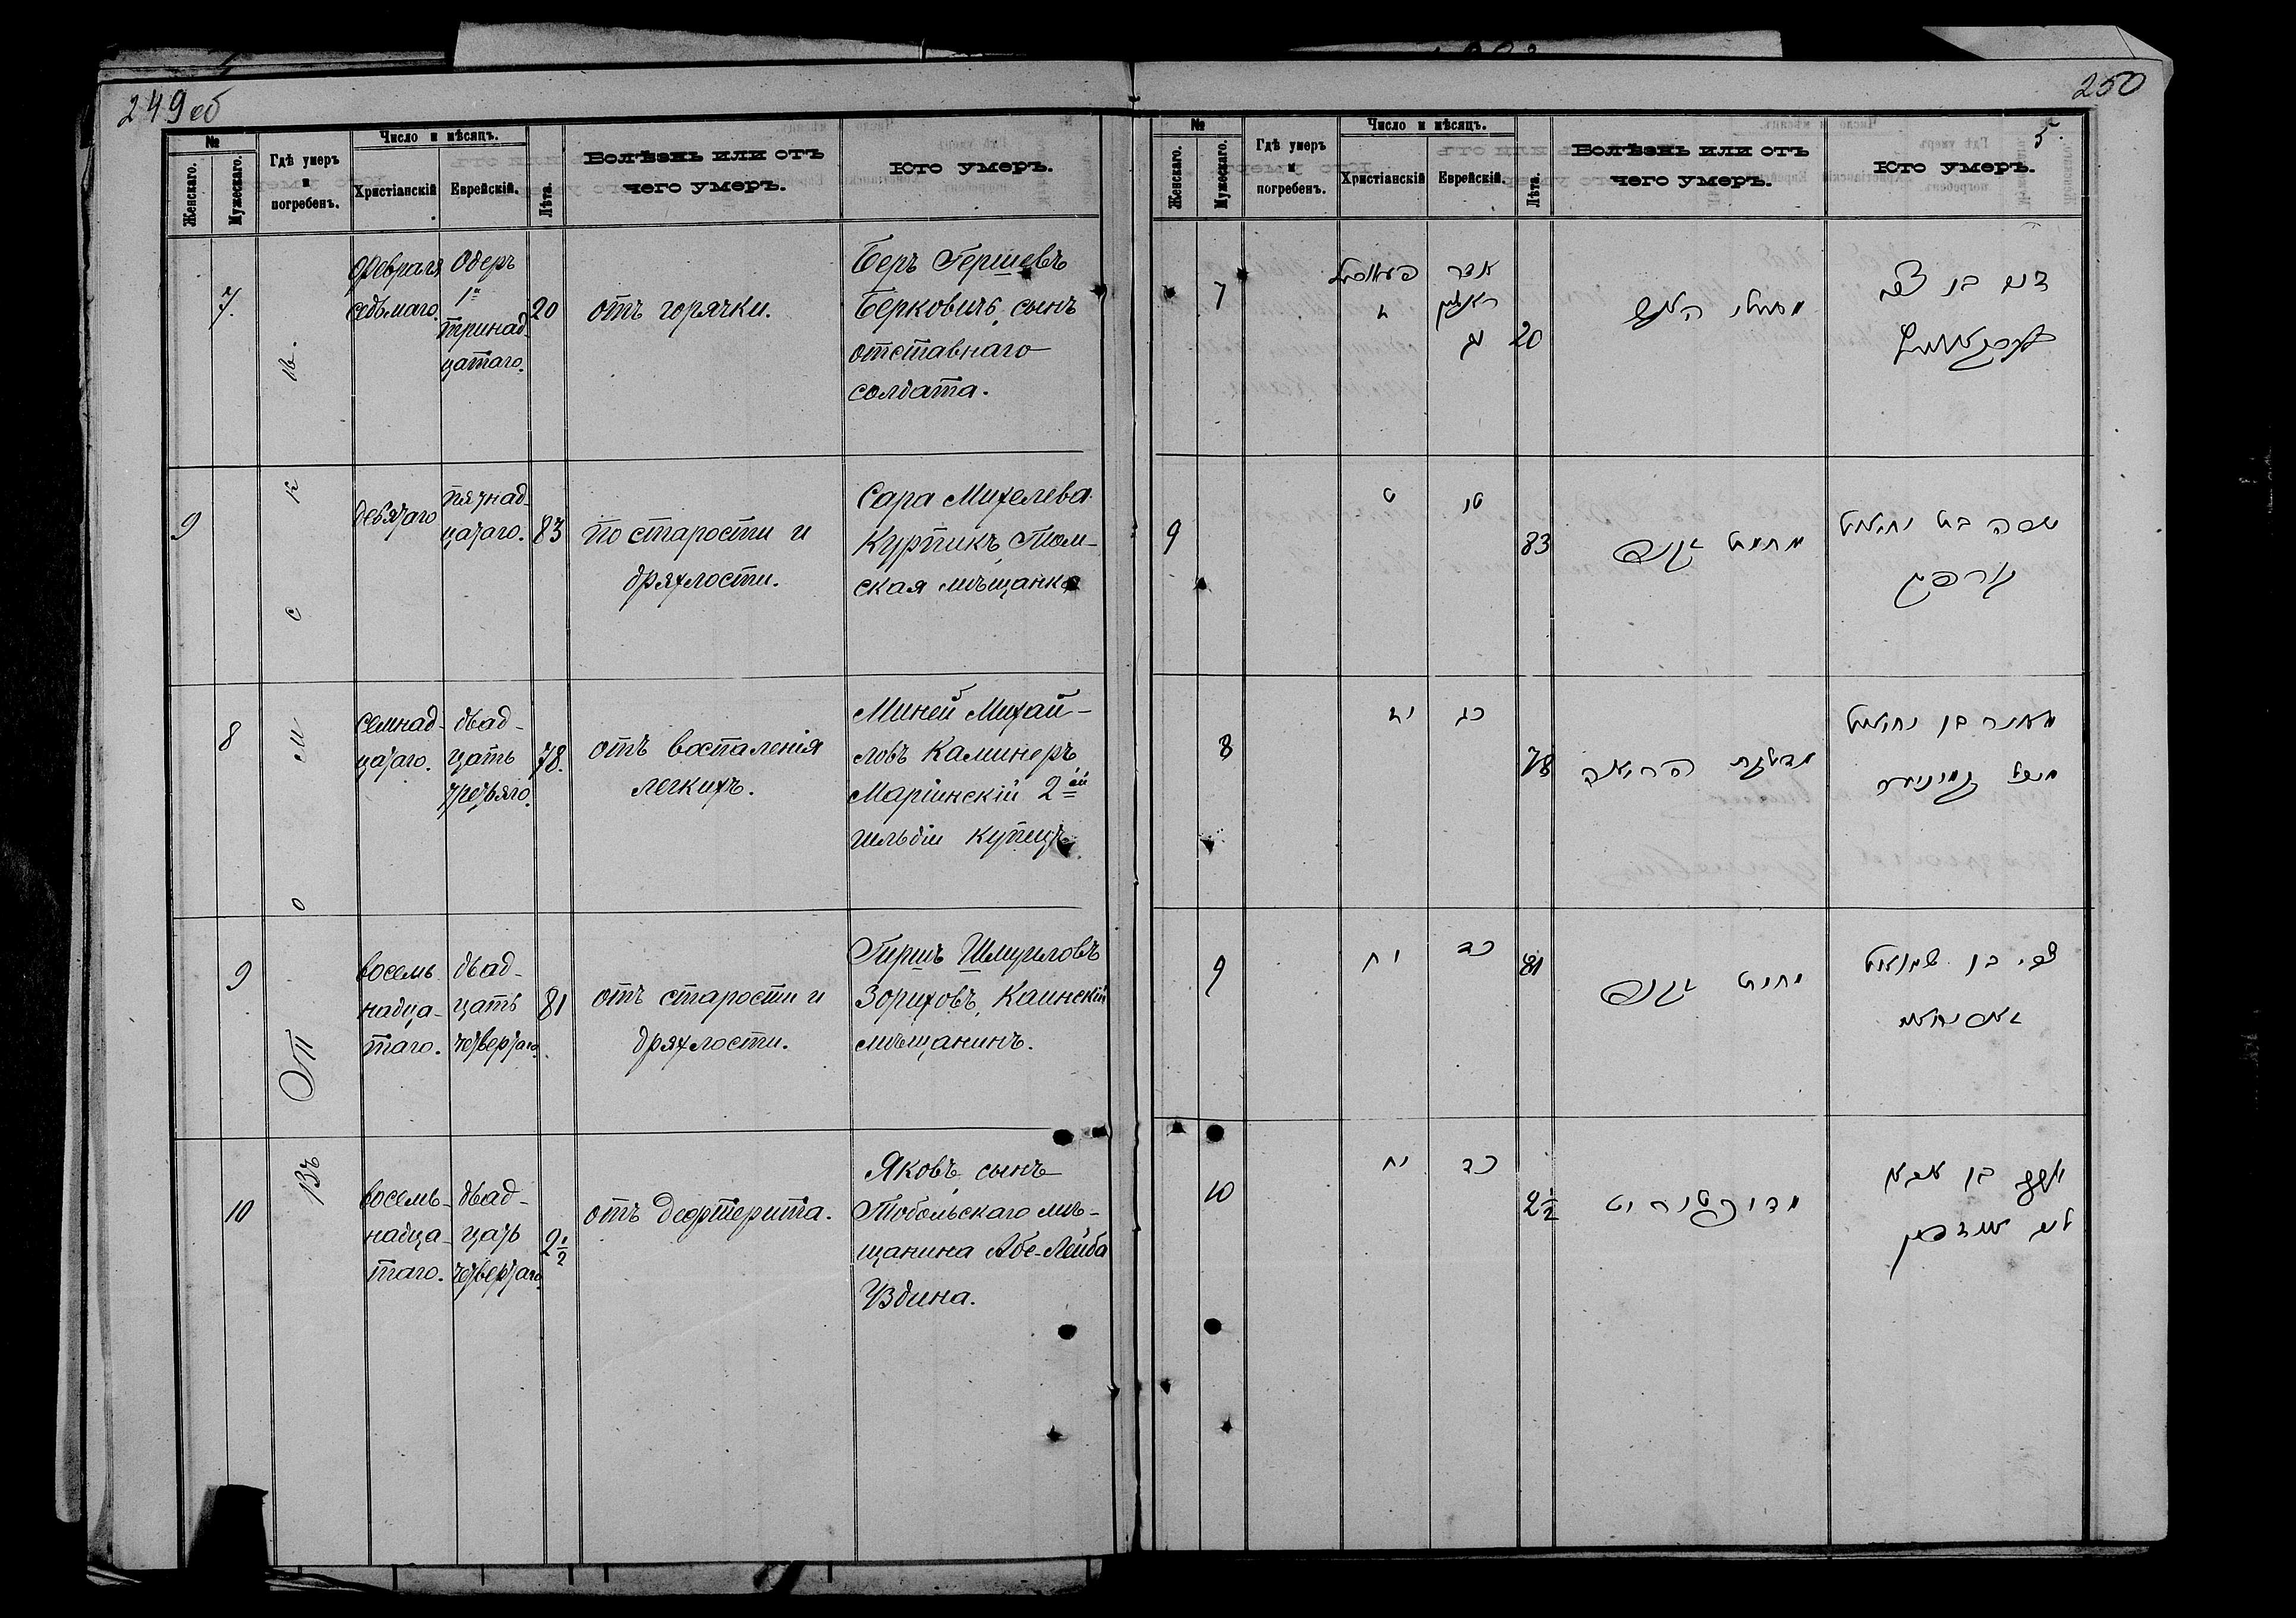 249 об
№
Женскаго.
Мужескаго.
Гдѣ умеръ
и
погребенъ.
Число и мѣсяцъ.
Христіанскій
Еврейскій.
Лѣта.
Болѣзнь или отъ
чего умеръ.
Кто умеръ.
Въ Омскѣ
7.
Февраля
седьмаго.
Одеръ
1й
тринад-
цатаго.
20
отъ горячки.
Беръ Гершевъ
Берковичъ, сынъ
отставнаго
солдата.
9
девятаго
пятнад-
цатаго.
83
по старости и
дряхлости.
Сара Михелева
Курпикъ, Том-
ская мѣщанка
8
семнад-
цатаго.
двад-
цать
третьяго.
78.
отъ воспаленія
легкихъ.
Миней Михай-
ловъ Каминеръ,
Маріинскій 2ей
гильдіи купецъ.
9
восемь-
надца-
таго.
двад-
цать
четвертаго.
81
отъ старости и
дряхлости.
Гиршъ Шмуиловъ
Зориховъ, Каинскій
мѣщанинъ.
10
восемь-
надца-
таго.
двад-
цать
четвертаго.
2½
отъ дефтерита.
Яковъ сынъ
Тобольскаго мѣ-
щанина Абе-Лейба
Уздина.
250
5.
№
Женскаго.
Мужескаго.
Гдѣ умеръ
и
погребенъ.
Число и мѣсяцъ.
Христіанскій
Еврейскій.
Лѣта.
Болѣзнь или отъ
чего умеръ.
Кто умеръ.
7
אדר
ראשון
יג
20
בן
9
ט
טו
83
מחמת זקנה
שרה בת יחיאל
8
יז
כג
78
מדלקת הריאה
בן יחיאל
9
יח
כד
81
זקנה
צבי בן שמואל
10
יח
כד
2½
יעקב בן אבא